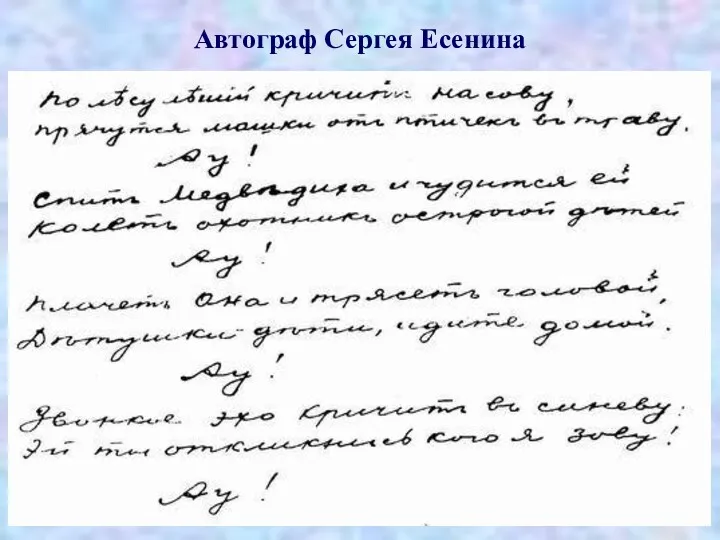 Автограф Сергея Есенина
По лѣсу лѣший кричитъ на сову,
прячутся мошки отъ птичекъ въ траву.
Ау!
Спитъ Медвѣдиха и чудится ей
Колетъ охотникъ острогой дѣтей
Ау!
Плачетъ Она и трясетъ головой,
Дѣтушки дѣти, идите домой.
Ау!
Звонкое эхо кричитъ въ синеву:
Эй ты откликнись кого я зову!
Ау!